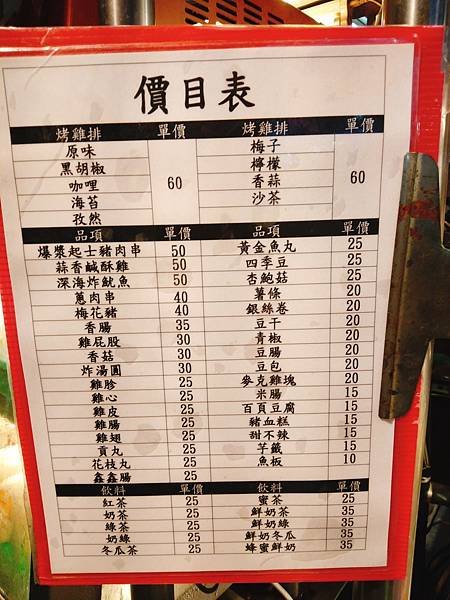 價目表
烤雞排 單價 烤雞排 單價
原味 梅子
黑胡椒 檸檬
咖哩 60 香蒜 60
海苔 沙茶
孜然
品項 單價 品項 單價
爆漿起士豬肉串 50 黃金魚丸 25
蒜香鹹酥雞 50 四季豆 25
深海炸魷魚 50 杏鮑菇 25
蔥肉串 40 薯條 20
梅花豬 40 銀絲卷 20
香腸 35 豆干 20
雞屁股 30 青椒 20
香菇 30 豆腸 20
炸湯圓 30 豆包 20
雞胗 25 麥克雞塊 20
雞心 25 米腸 15
雞皮 25 百頁豆腐 15
雞腸 25 豬血糕 15
雞翅 25 甜不辣 15
貢丸 25 芋籤 15
花枝丸 25 魚板 10
鑫鑫腸 25
飲料 單價 飲料 單價
紅茶 25 蜜茶 25
奶茶 25 鮮奶茶 35
綠茶 25 鮮奶綠 35
奶綠 25 鮮奶冬瓜 35
冬瓜茶 25 蜂蜜鮮奶 35